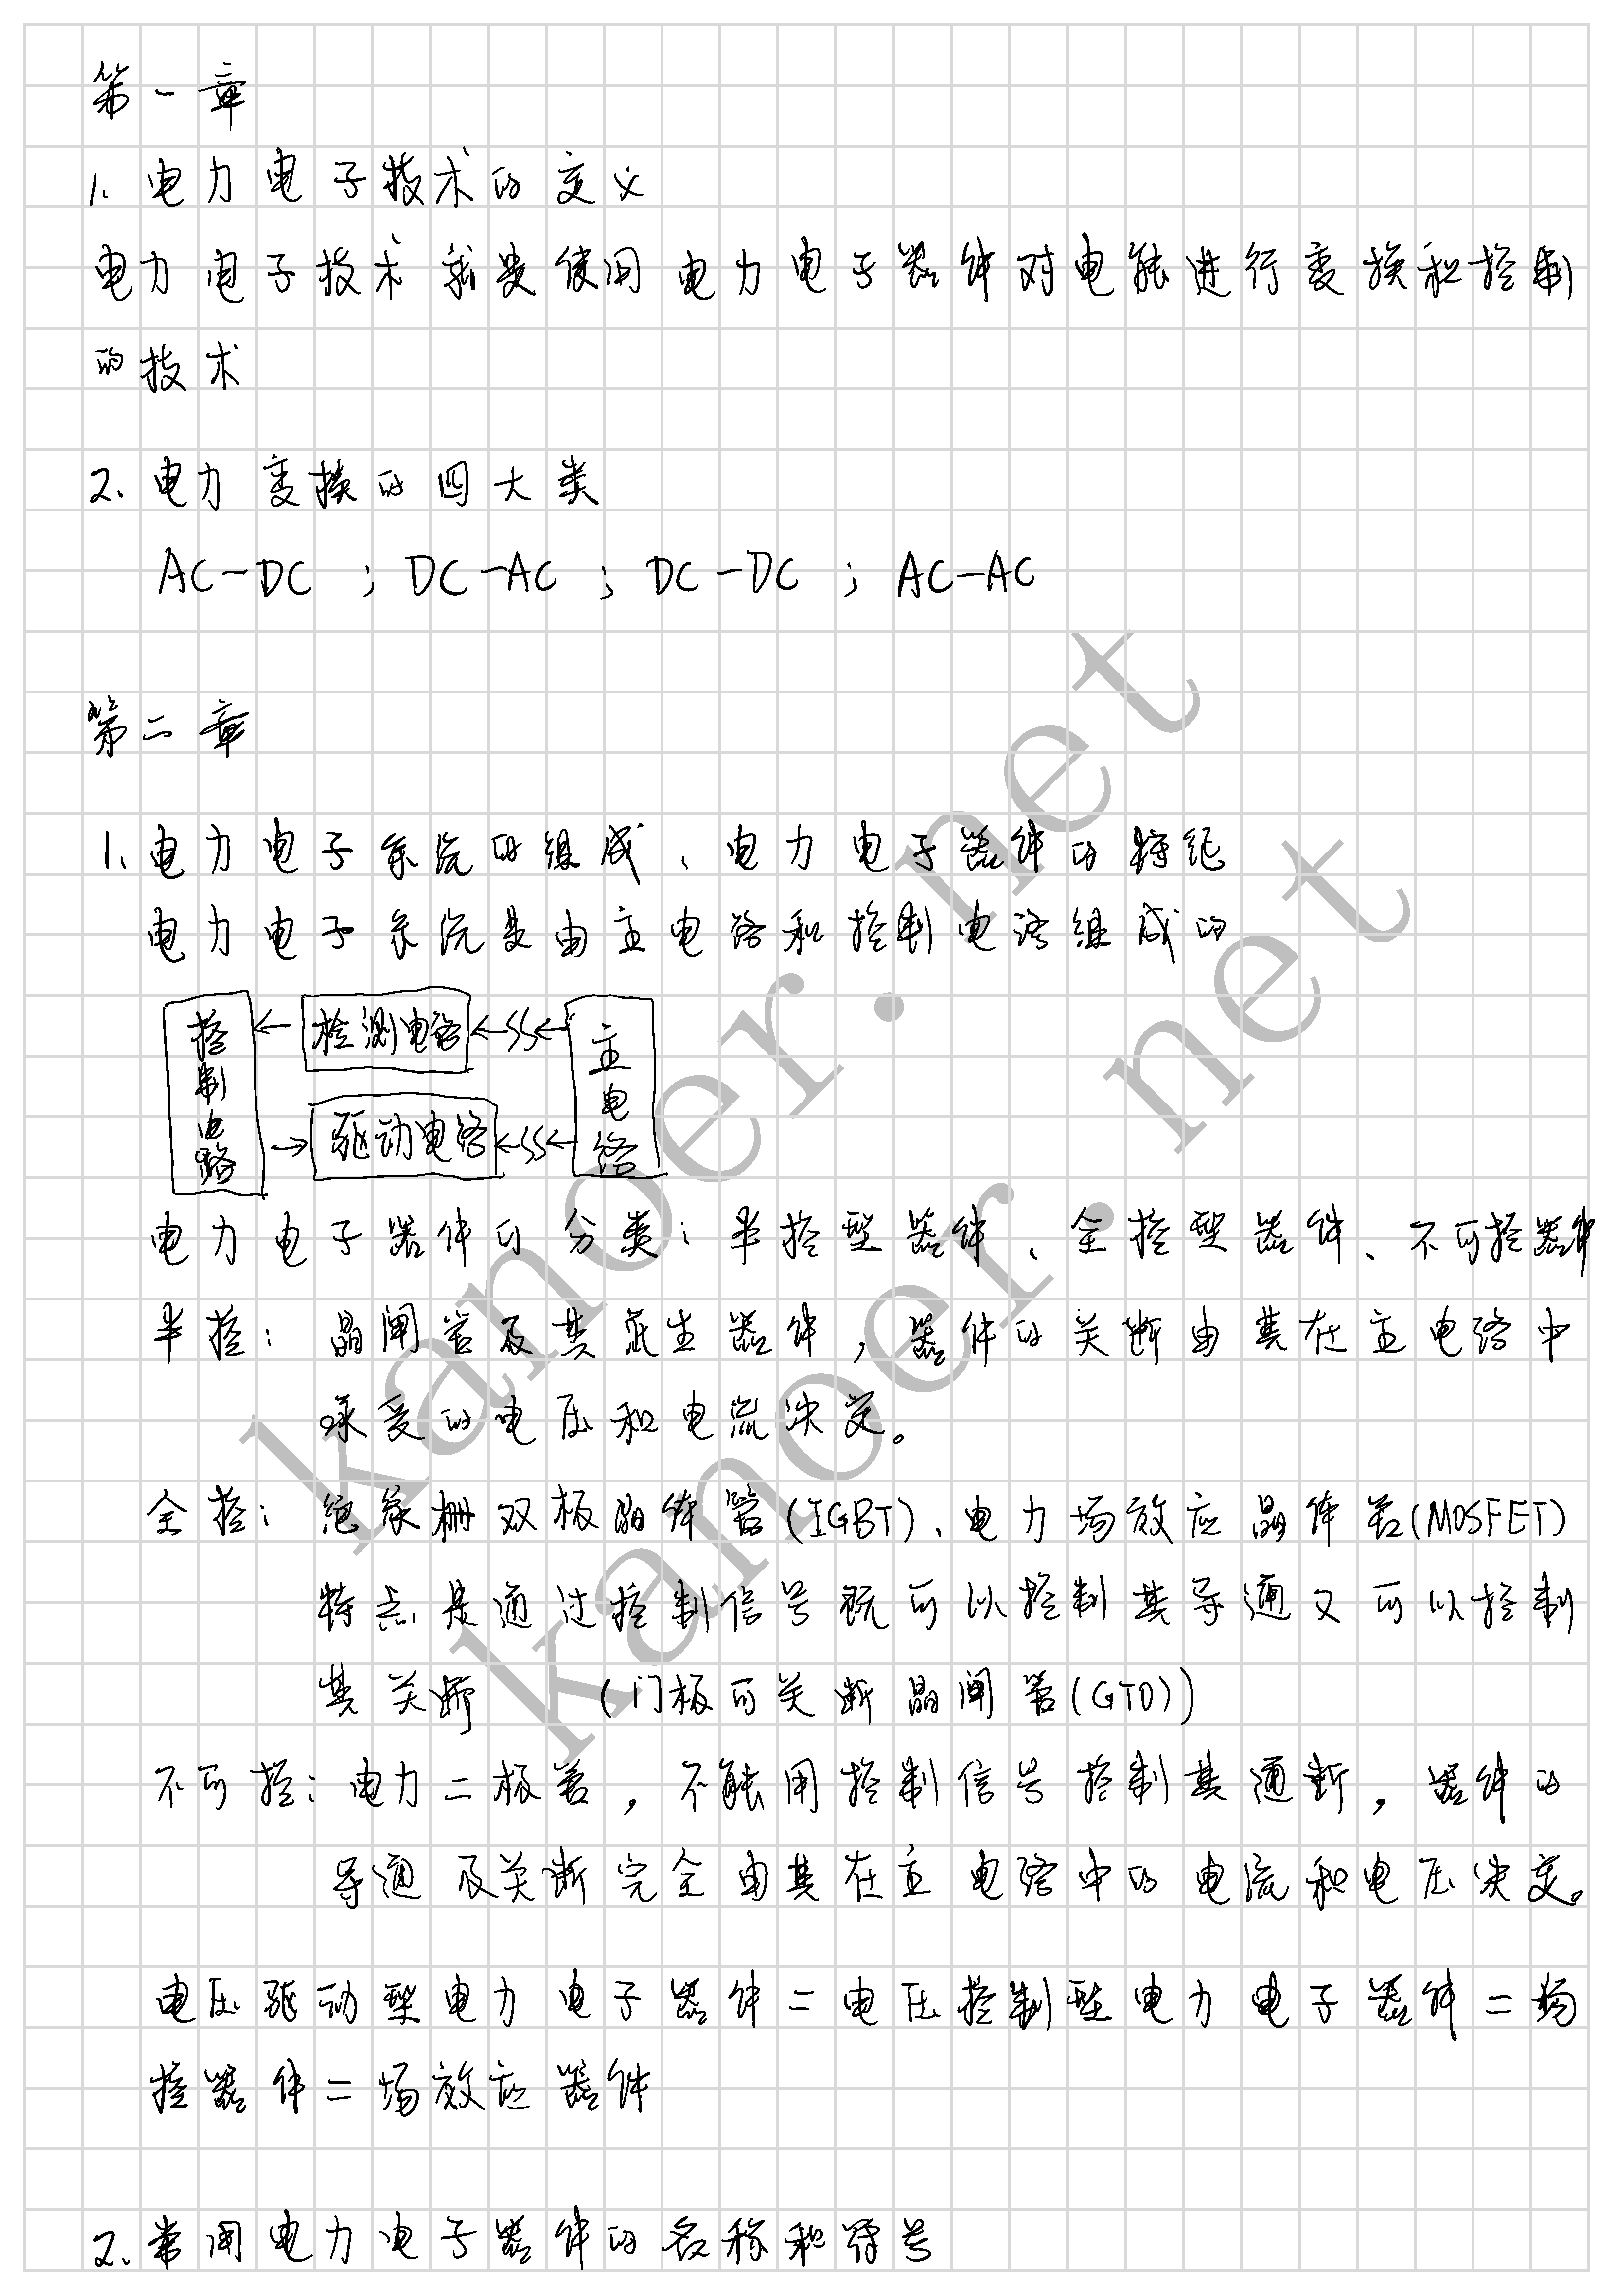 第一章
1、电力电子技术的定义
电力电子技术就是使用电力电子器件对电能进行变换和控制
的技术
2、电力变换的四大类
AC-DC ; DC-AC ; DC-DC ; AC-AC
第二章
1、电力电子系统的组成、电力电子器件的特征
电力电子系统是由主电路和控制电路组成的
控制电路
检测电路
主电路
驱动电路
电力电子器件的分类：半控型器件、全控型器件、不可控器件
半控：晶闸管及其派生器件，器件的关断由其在主电路中
承受的电压和电流决定。
全控：绝缘栅双极晶体管(IGBT)、电力场效应晶体管(MOSFET)
特点是通过控制信号既可以控制其导通又可以控制
其关断 (门极可关断晶闸管(GTO))
不可控：电力二极管，不能用控制信号控制其通断，器件的
导通及关断完全由其在主电路中的电流和电压决定。
电压驱动型电力电子器件=电压控制型电力电子器件=场
控器件=场效应器件
2、常用电力电子器件的名称和符号
kanoer.net
kanoer.net